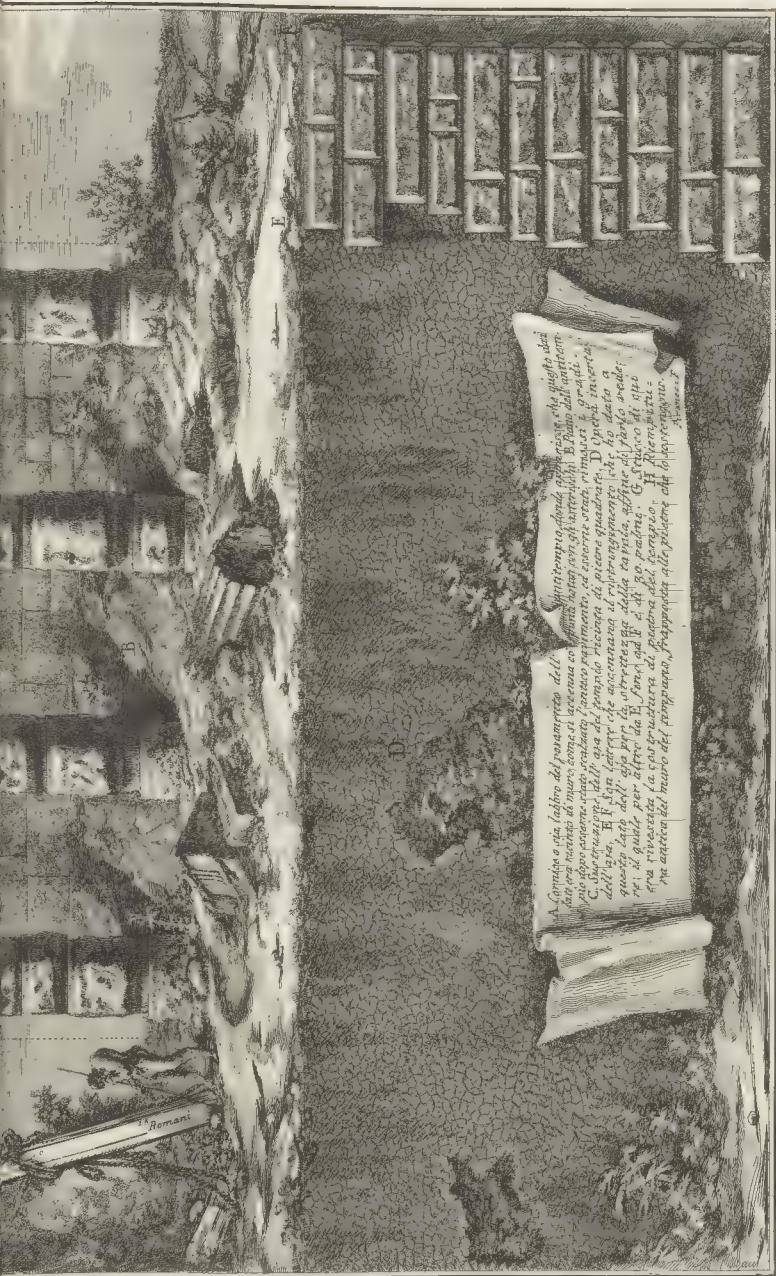 A Cornice o sia labbro del posamento dell' Antitempio, donde apparisce, che questo dal
lato era recinto di muro, come si accenna co' punti notati con gli asterischi B Piano dell' antitem-
pio dopo esserne stato scalzato l'antico pavimento, ed esserne stati rimossi i gradi.
C. Sustruzione dell' aja del tempio recinta di pietre quadrate. D Opera incerta
dell' aja. E F Son lettere che accennano il ristringimento che ho dato a
questo lato dell' aja per la strettezza della tavola, affine di farlo vede-
re; il quale per altro da E fino ad F è di 30 palmi. G Stucco di cui
era rivestita la costruttura di pietra del tempio. H Riempitu-
ra antica del muro del timpano, frapposta alle pietre che lo sostengono.
Francesco F
B
E
C
D
Romani